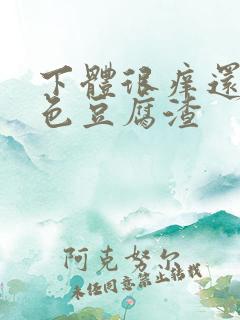 下體很痒還
色豆腐渣
阿克努尔
未经同意禁止转载